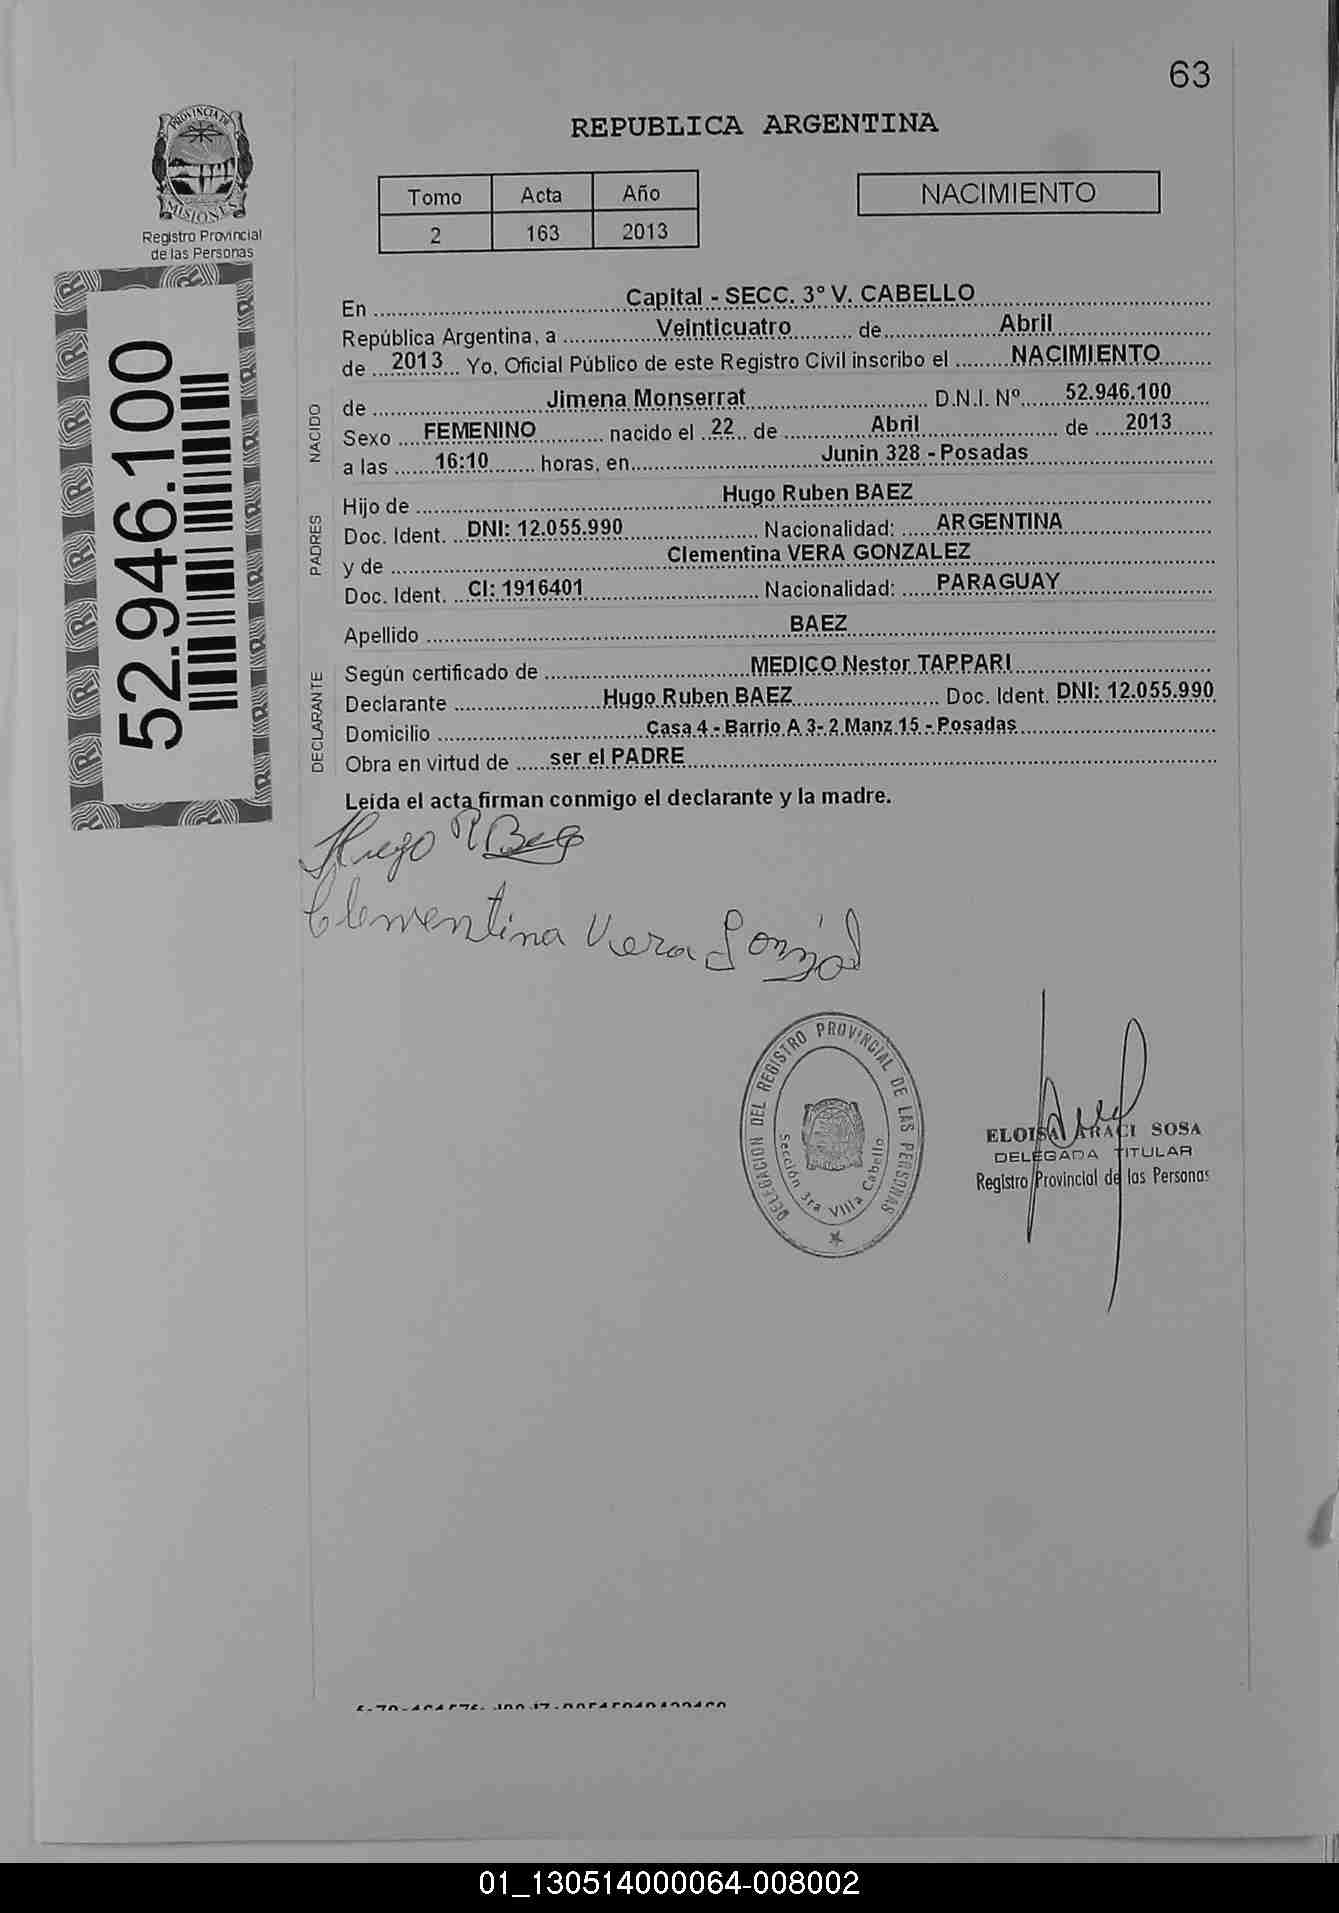 63
PROVINCIA DE
MISIONES
Registro Provincial
de las Personas
REPUBLICA ARGENTINA
Tomo Acta Año
2 163 2013
NACIMIENTO
52.946.100
En Capital - SECC. 3° V. CABELLO
República Argentina, a Veinticuatro de Abril
de 2013 Yo, Oficial Público de este Registro Civil inscribo el NACIMIENTO
NACIDO
de Jimena Monserrat D.N.I. Nº 52.946.100
Sexo FEMENINO nacido el 22 de Abril de 2013
a las 16:10 horas, en Junin 328 - Posadas
PADRES
Hijo de Hugo Ruben BAEZ
Doc. Ident. DNI: 12.055.990 Nacionalidad: ARGENTINA
y de Clementina VERA GONZALEZ
Doc. Ident. CI: 1916401 Nacionalidad: PARAGUAY
Apellido BAEZ
DECLARANTE
Según certificado de MEDICO Nestor TAPPARI
Declarante Hugo Ruben BAEZ Doc. Ident. DNI: 12.055.990
Domicilio Casa 4 - Barrio A 3- 2 Manz.15 - Posadas
Obra en virtud de ser el PADRE
Leída el acta firman conmigo el declarante y la madre.
Hugo R Baez
Clementina Vera
DELEGACION DEL REGISTRO PROVINCIAL DE LAS PERSONAS
Sección 3ra Villa Cabello
ELOISA ARACI SOSA
DELEGADA TITULAR
Registro Provincial de las Personas
01_130514000064-008002